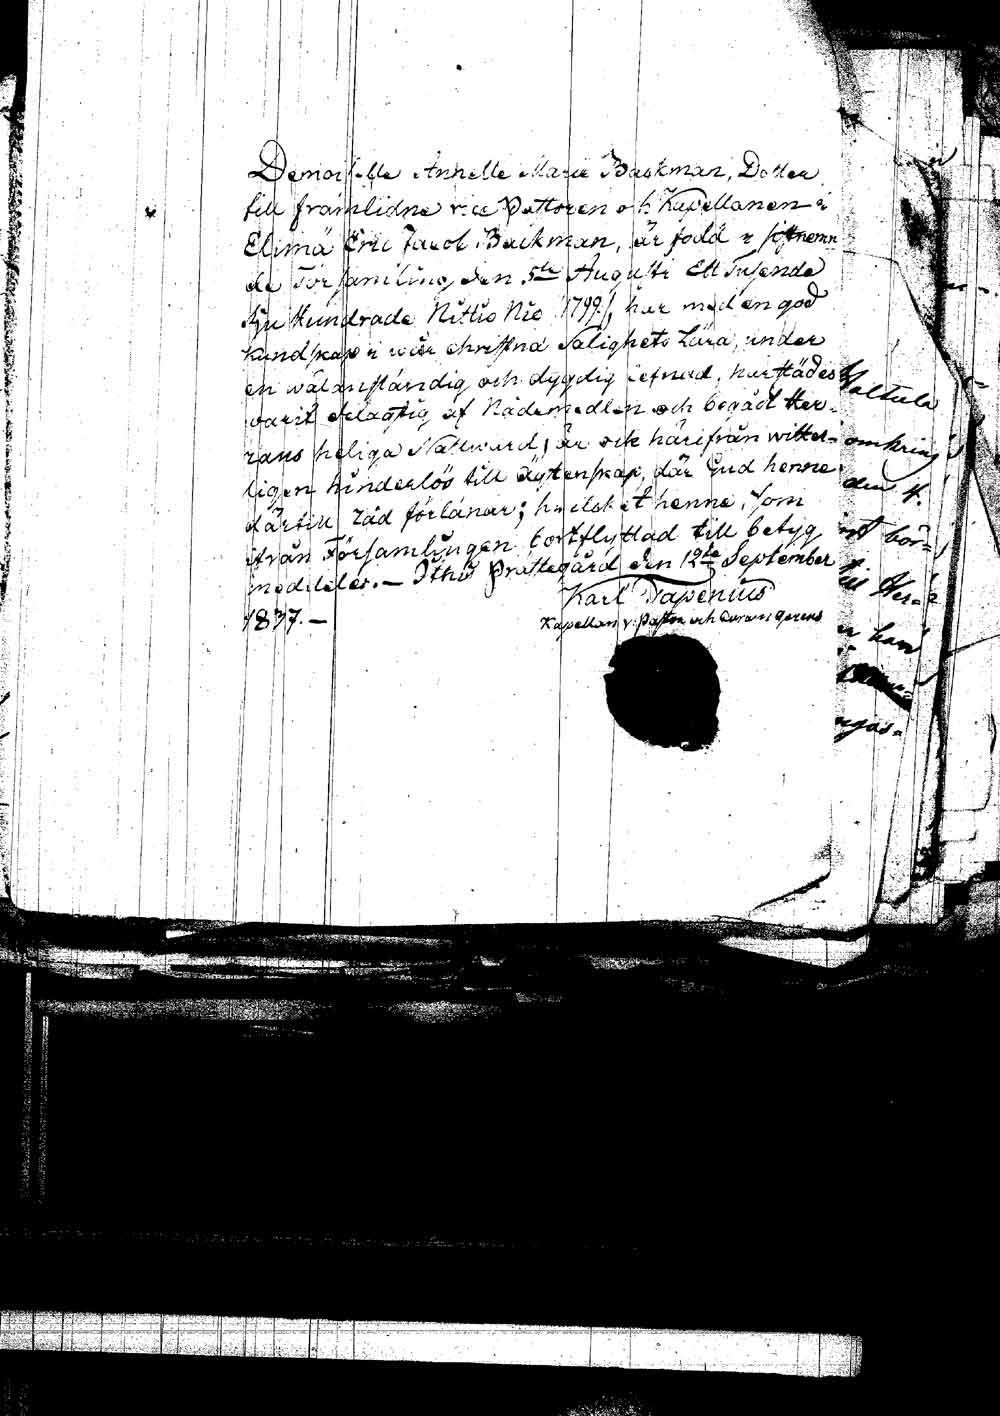 Demoiselle Annette Marie Backman, Dotter
till framlidne vice Pastoren och Kapellanen i
Elimä Eric Jacob Backman, är född i sistnemn
de Församling den 5te Augusti Ett Tusende
Sju Hundrade Nittio Nio /1799/, har med en god
kundskap i wår christna Salighets Lära, under
en wälanständig och dygdig lefnad, har städes
varit delagtig af Nådemedlen och begådt Her-
rans heliga Nattward; är ock härifrån witter-
ligen hinderlös till Ägtenskap, där Gud henne
därtill råd förlänar; hwilket henne, som
ifrån Församlingen bortflyttad till betyg
meddelas. — Itthis Prästegård den 12te September
1837. —
Karl
Kapellan v. Pastor och Curam Gerens
omkring
den 4.
bör-
till Her-
han